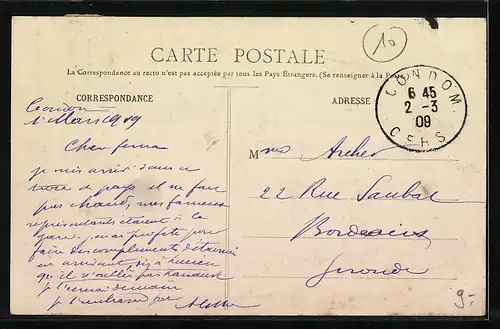 CARTE POSTALE
La Correspondance au recto n'est pas acceptée par tous les Pays Étrangers. (Se renseigner à la Poste
CORRESPONDANCE
ADRESSE
10
CONDOM
6 45
2 - 3
09
GERS
Condom
1 Mars 1909
je suis arrivé dans ce
de pays il ne fait
pas chaud, mes fameux
représentants étaient à la
gare, j'en ai profité pour
faire des compliments
en arrivant, dis à Lucien
qu'il n'oublie pas
je t'embrasse
Mme Archer
22 Rue Saubat
Bordeaux
Gironde
9.-